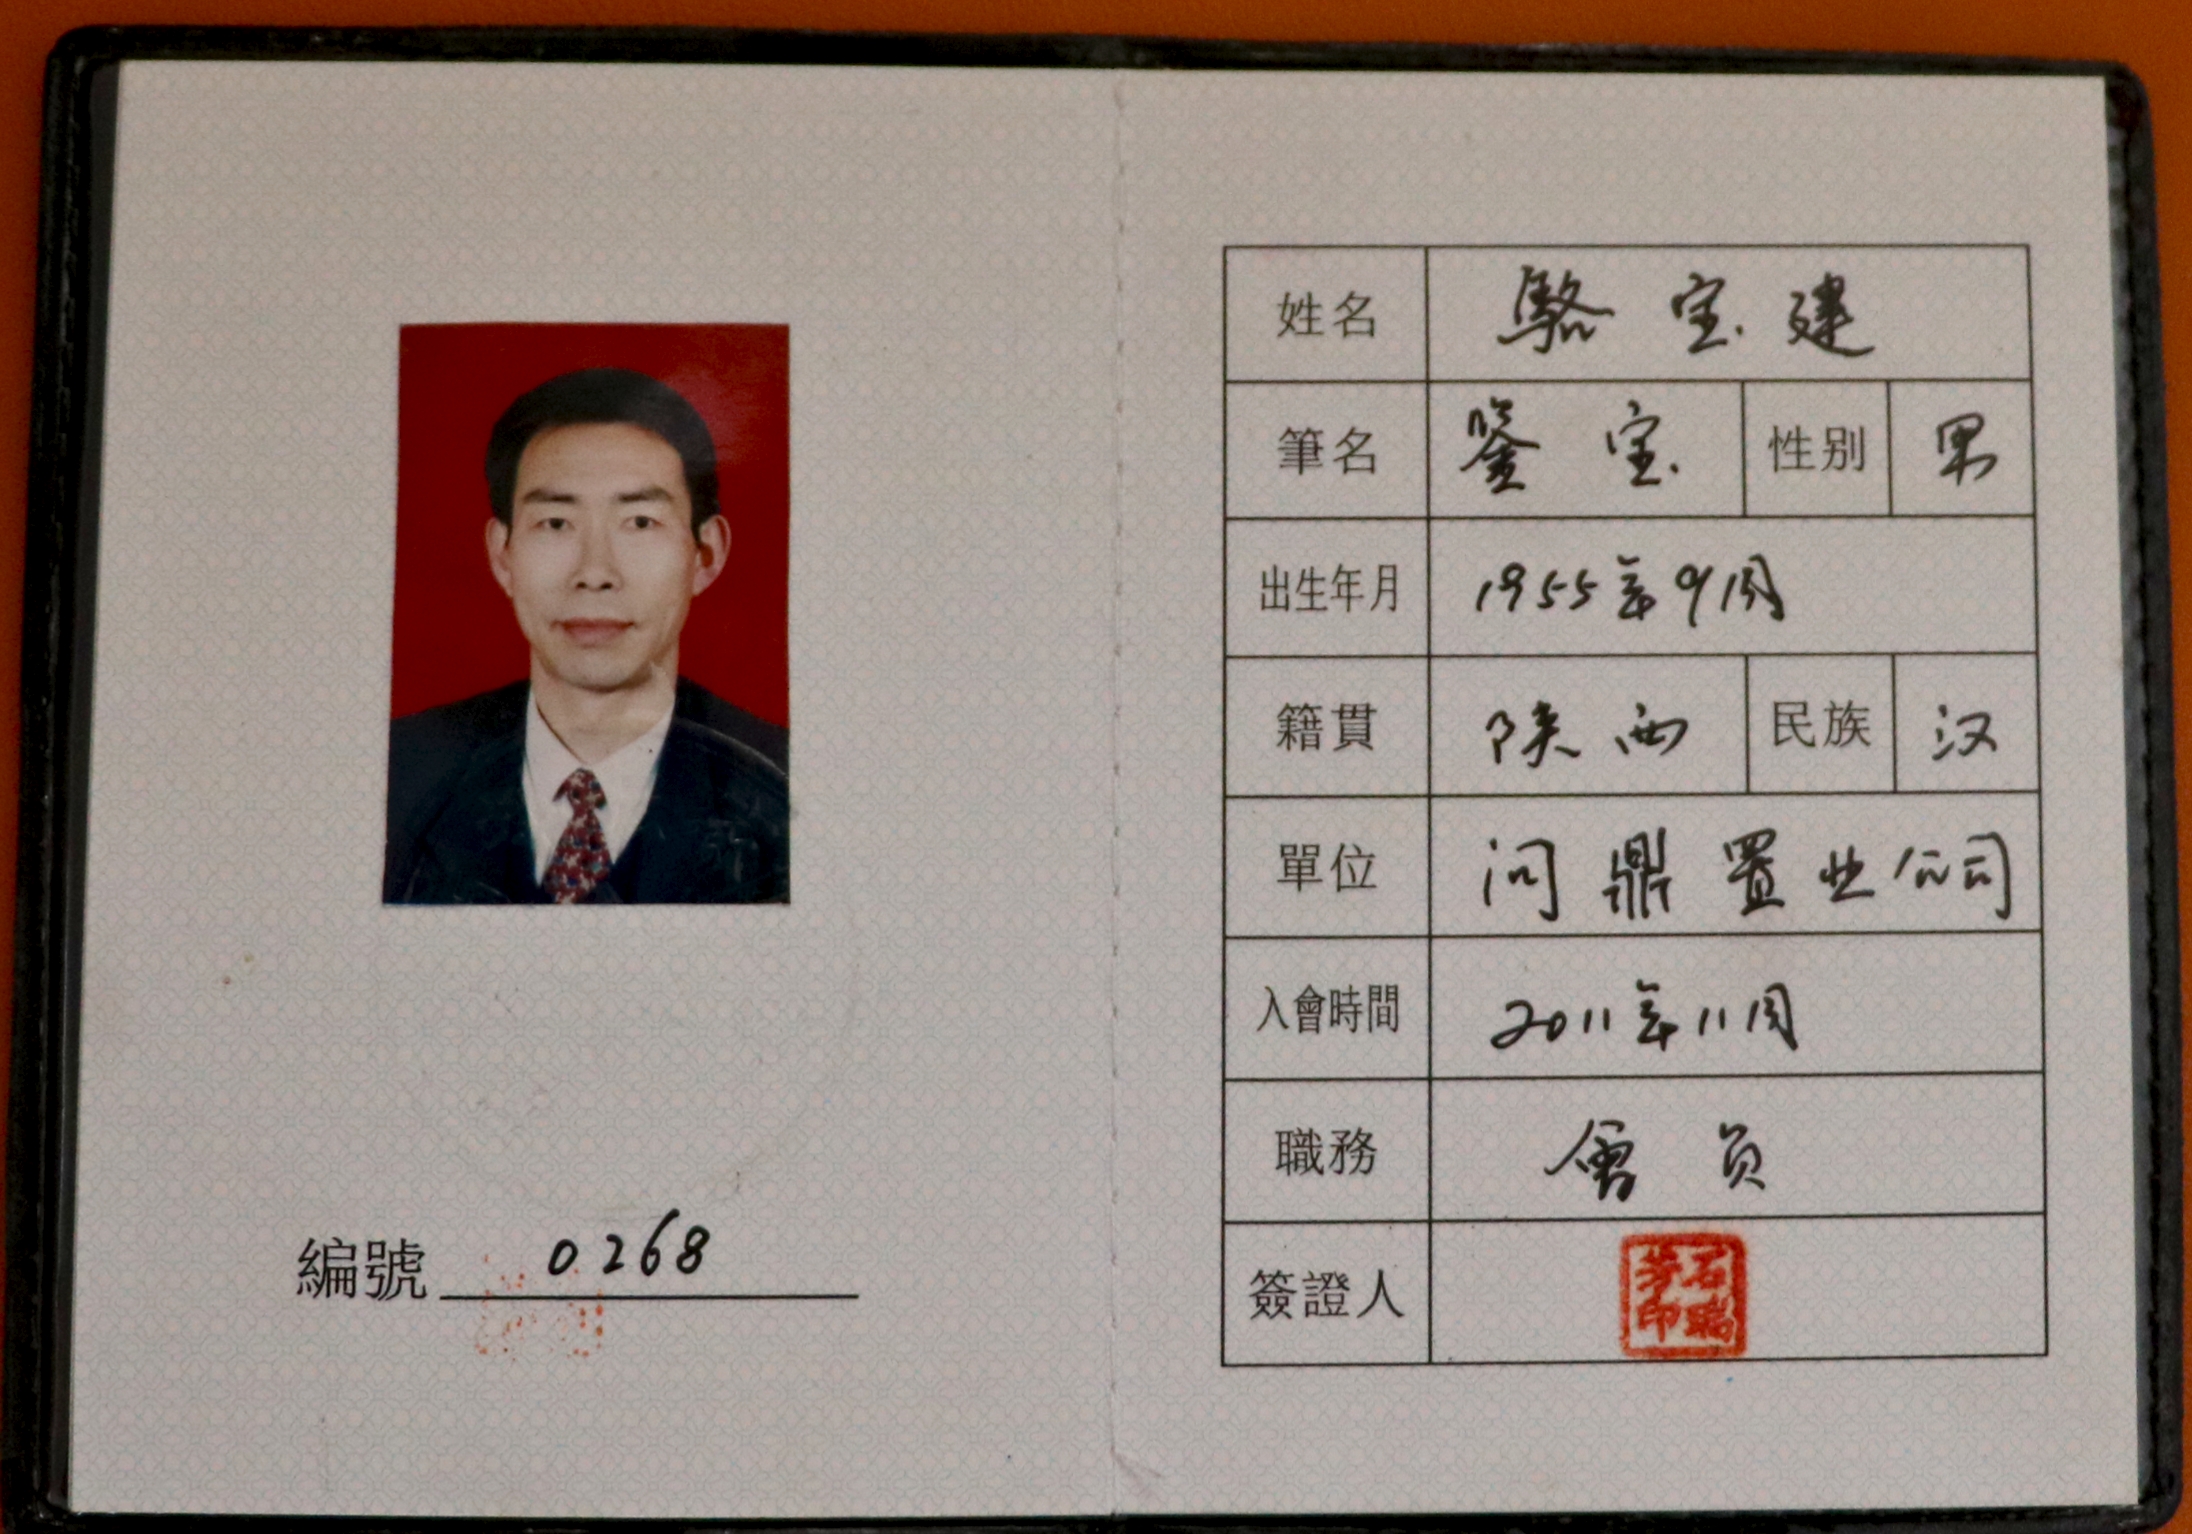 編號 0268
姓名 駱宝建
筆名 鉴宝 性别 男
出生年月 1955年9月
籍貫 陕西 民族 汉
單位 问鼎置业公司
入會時間 2011年11月
職務 會员
簽證人 石瑞芳印